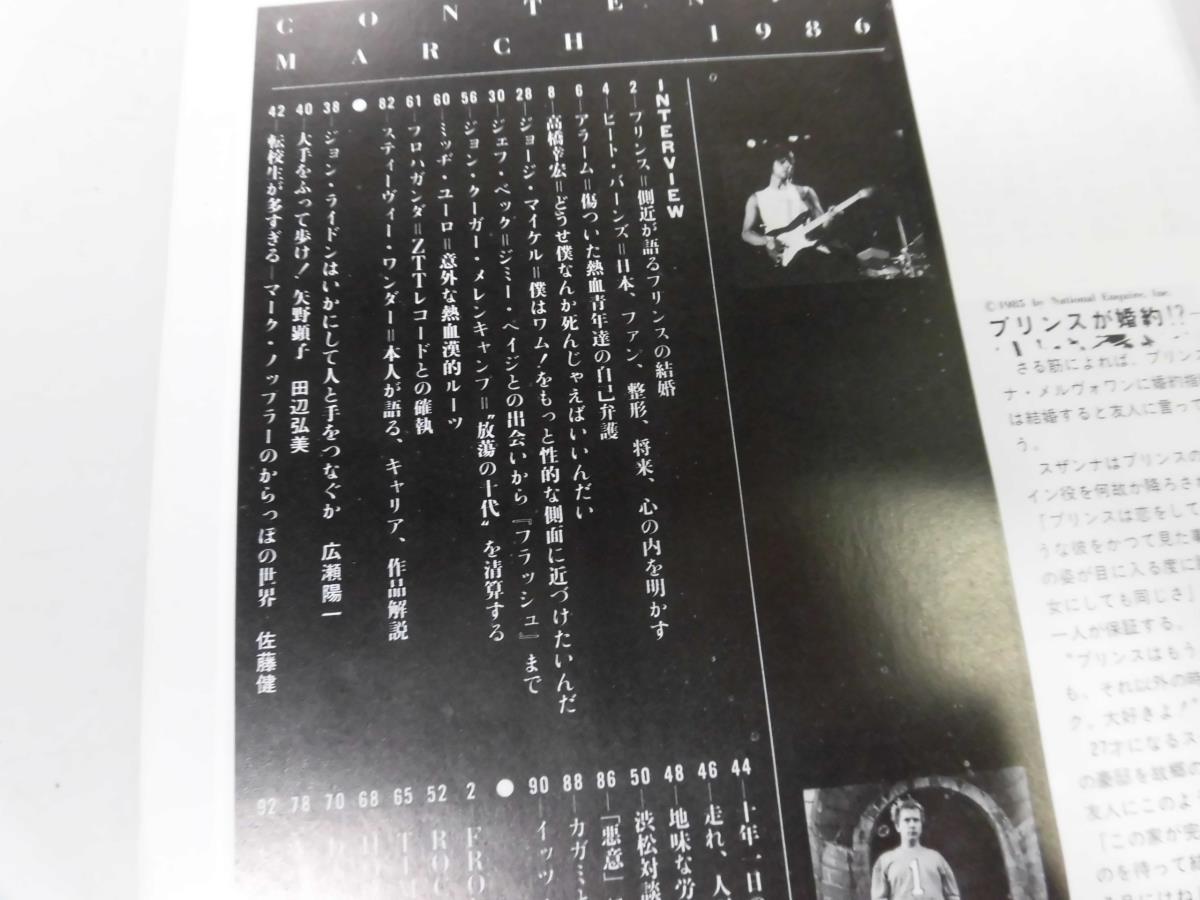 MARCH 1986
INTERVIEW
2—プリンス=側近が語るプリンスの結婚
4—ピート・バーンズ=日本、ファン、整形、将来、心の内を明かす
6—アラーム=傷ついた熱血青年達の自己弁護
8—高橋幸宏=どうせ僕なんか死んじゃえばいいんだい
28—ジョージ・マイケル=僕はワム!をもっと性的な側面に近づけたいんだ
30—ジェフ・ベック=ジミー・ペイジとの出会いから『フラッシュ』まで
56—ジョン・クーガー・メレンキャンプ=〝放蕩の十代〟を清算する
60—ミッヂ・ユーロ=意外な熱血漢的ルーツ
61—プロパガンダ=ZTTレコードとの確執
82—スティーヴィー・ワンダー=本人が語る、キャリア、作品解説
●
38—ジョン・ライドンはいかにして人と手をつなぐか 広瀬陽一
40—大手をふって歩け!矢野顕子 田辺弘美
42—転校生が多すぎる—マーク・ノップラーのからっぽの世界 佐藤健
44—十年一日の
46—走れ、人
48—地味な労
50—渋松対談
86—「悪意」
88—カガミと
90—イッツ
●
2 FRO
52 ROC
65 TIM
68
70
78
92
©1985 by National Enquirer, Inc.
プリンスが婚約!?
さる筋によれば、プリン
ナ・メルヴォワンに婚約指
は結婚すると友人に言って
う。
スザンナはプリンスの
イン役を何故か降ろされ
『プリンスは恋をして
うな彼をかつて見た事
の姿が目に入る度に
女にしても同じさ』
一人が保証する。
〝プリンスはもう
も、それ以外の時
ク。大好きよ!〟
27才になるス
の豪邸を故郷の
友人にこのよ
『この家が完
のを待って結
1